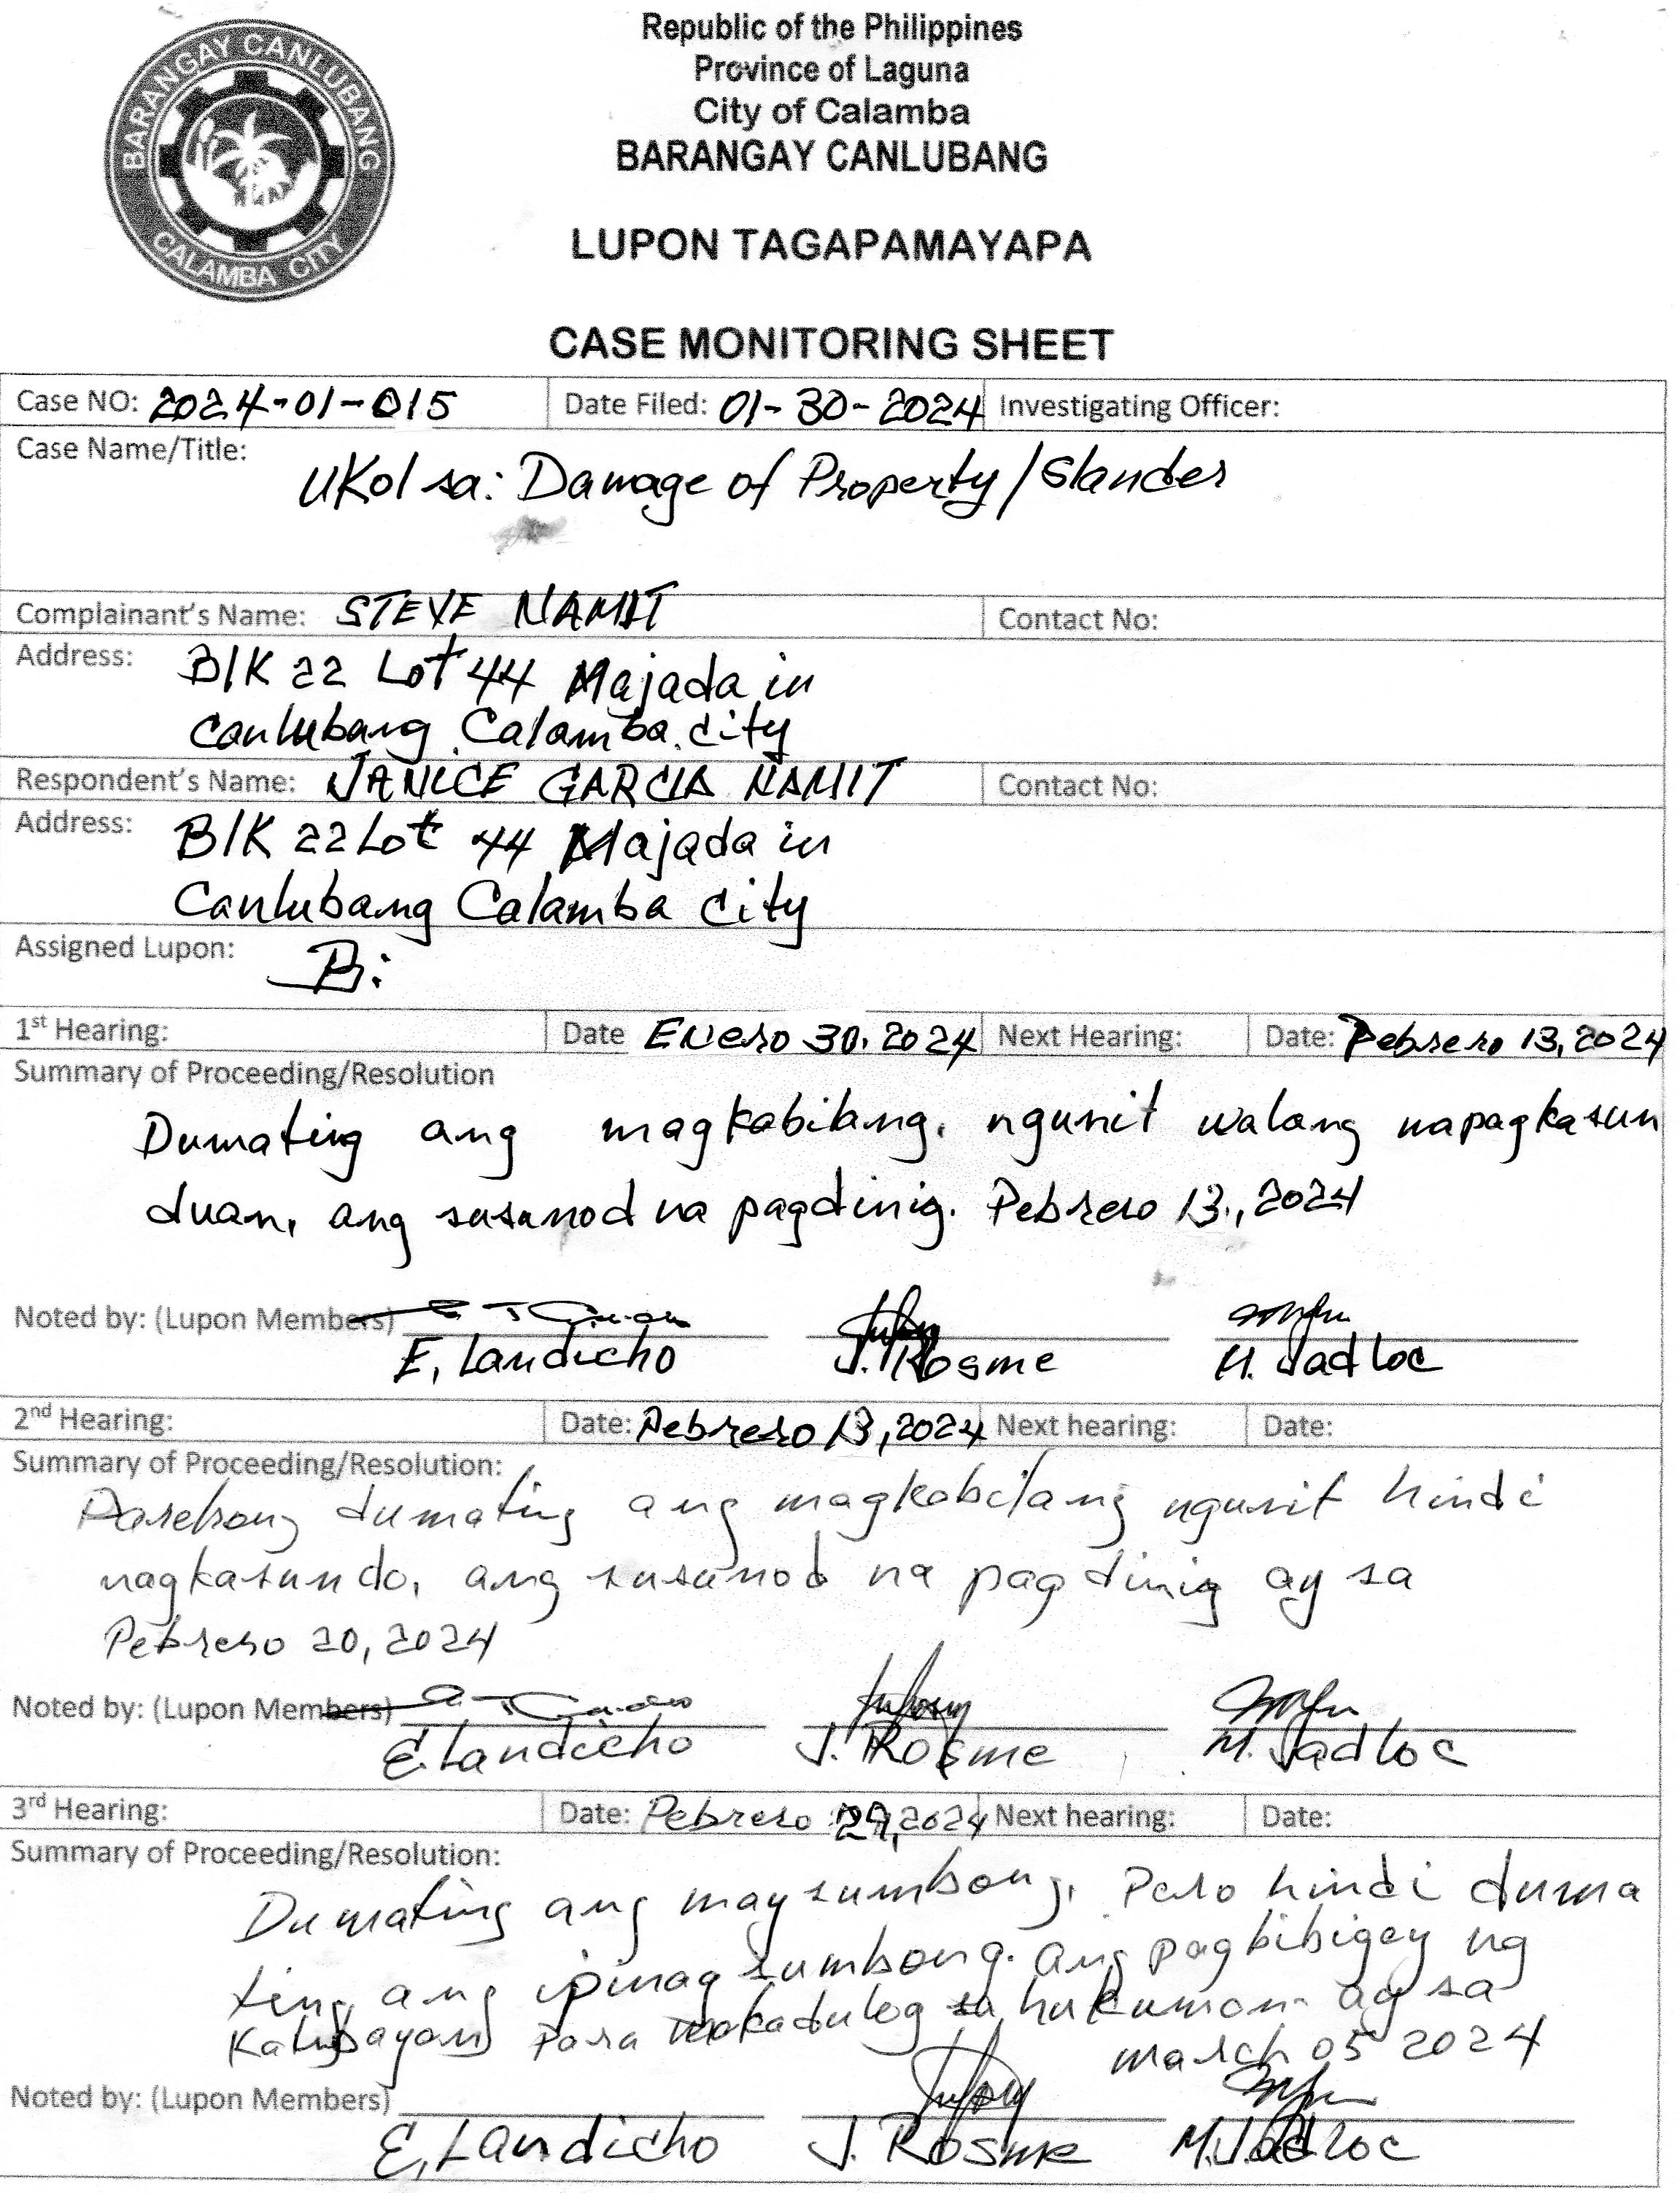 BARANGAY CANLUBANG
CALAMBA CITY
Republic of the Philippines
Province of Laguna
City of Calamba
BARANGAY CANLUBANG
LUPON TAGAPAMAYAPA
CASE MONITORING SHEET
Case NO: 2024-01-015 Date Filed: 01-30-2024 Investigating Officer:
Case Name/Title:
UKol sa: Damage of Property/Slander
Complainant's Name: STEVE NAMIT Contact No:
Address: Blk 22 Lot 44 Majada in
Canlubang Calamba city
Respondent's Name: JANICE GARCIA NAMIT Contact No:
Address: Blk 22 Lot 44 Majada in
Canlubang Calamba city
Assigned Lupon:
1st Hearing: Date Enero 30, 2024 Next Hearing: Date: Pebrero 13, 2024
Summary of Proceeding/Resolution
Dumating ang magkabilang, ngunit walang napagkasun
duan, ang susunod na pagdinig. Pebrero 13, 2024
Noted by: (Lupon Members)
E. Landicho J. Rosme M. Jadloc
2nd Hearing: Date: Pebrero 13, 2024 Next hearing: Date:
Summary of Proceeding/Resolution:
Parehong dumating ang magkabilang ngunit hindi
nagkasundo, ang susunod na pagdinig ay sa
Pebrero 20, 2024
Noted by: (Lupon Members)
E. Landicho J. Rosme M. Jadloc
3rd Hearing: Date: Pebrero 2024 Next hearing: Date:
Summary of Proceeding/Resolution:
Dumating ang may sumbong, Pero hindi duma
ting ang ipinagsumbong. ang pagbibigay ng
Katibayan Para makadulog sa hukuman ay sa
march 05 2024
Noted by: (Lupon Members)
E. Landicho J. Rosme M. Jadloc